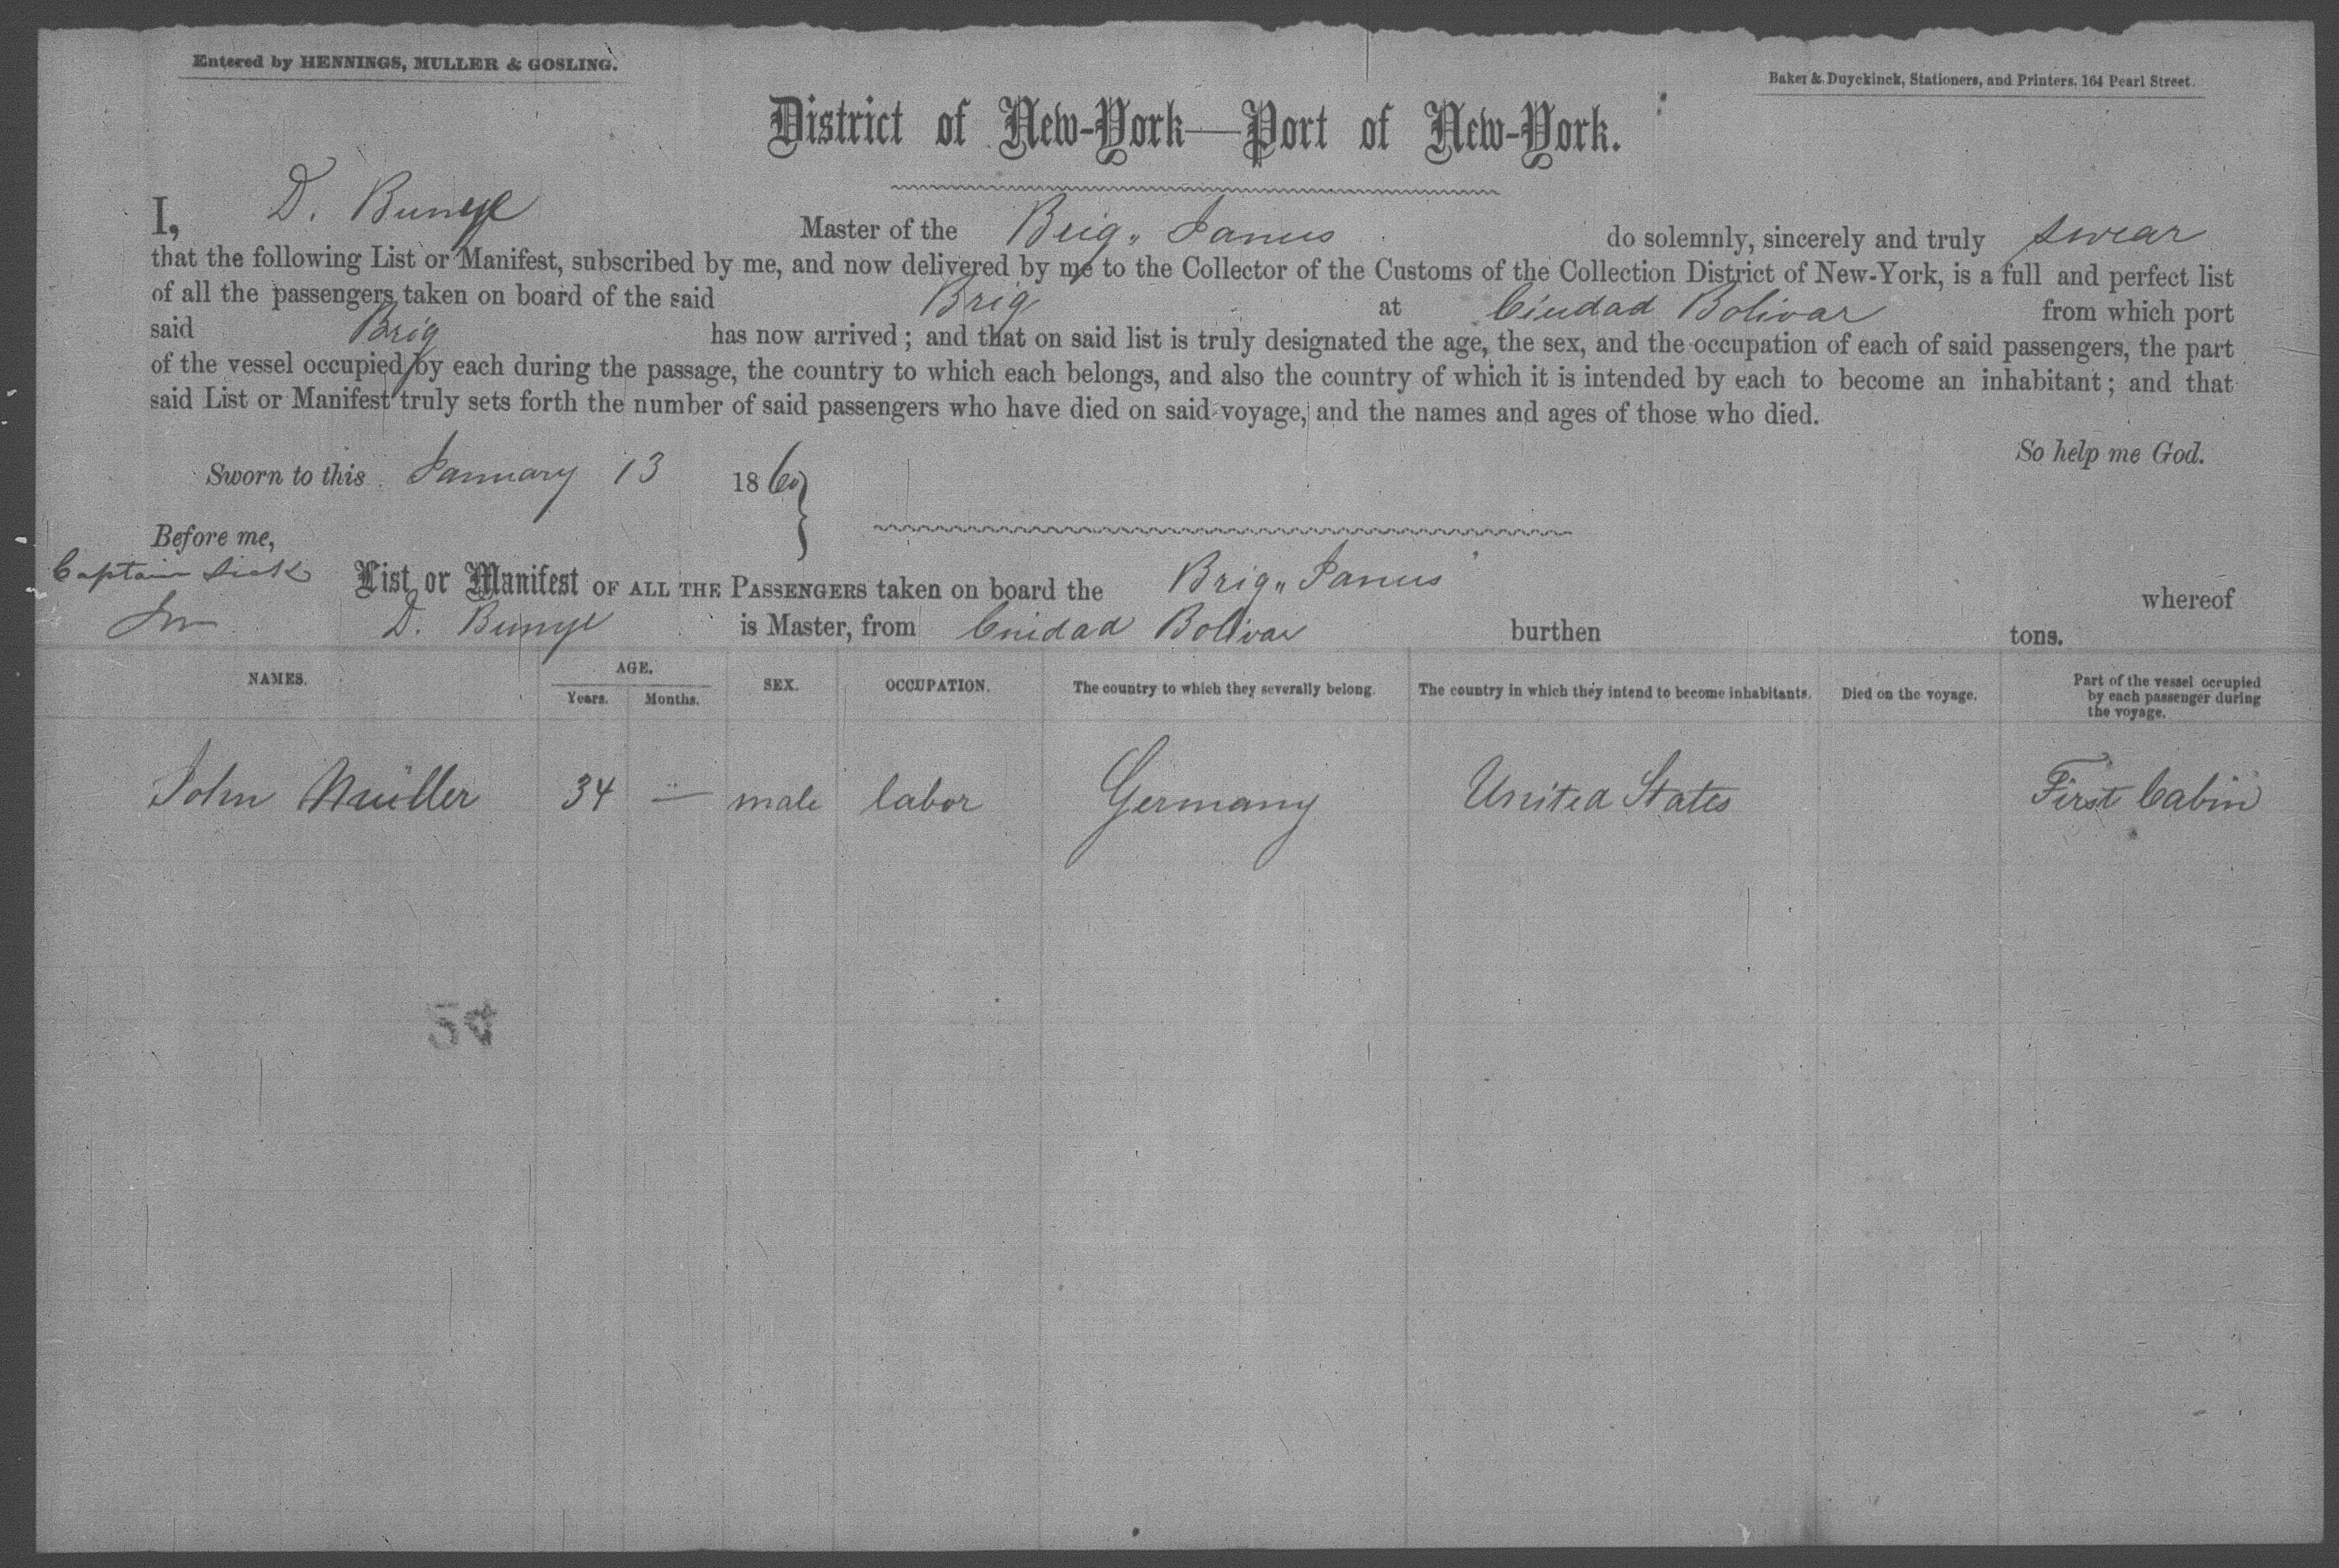 Entered by HENNINGS, MULLER & GOSLING.
Baker & Duyckinck, Stationers, and Printers, 164 Pearl Street.
District of New-York—Port of New-York.
I, D. Bunye Master of the Brig „ Janus do solemnly, sincerely and truly swear
that the following List or Manifest, subscribed by me, and now delivered by me to the Collector of the Customs of the Collection District of New-York, is a full and perfect list
of all the passengers taken on board of the said Brig at Ciudad Bolivar from which port
said Brig has now arrived; and that on said list is truly designated the age, the sex, and the occupation of each of said passengers, the part
of the vessel occupied by each during the passage, the country to which each belongs, and also the country of which it is intended by each to become an inhabitant; and that
said List or Manifest truly sets forth the number of said passengers who have died on said voyage, and the names and ages of those who died.
So help me God.
Sworn to this January 13 1860
Before me,
Captain sick
List or Manifest OF ALL THE PASSENGERS taken on board the Brig „ Janus" whereof
D. Bunye is Master, from Cuidad Bolivar burthen tons.
NAMES. AGE. SEX. OCCUPATION. The country to which they severally belong. The country in which they intend to become inhabitants. Died on the voyage. Part of the vessel occupied by each passenger during the voyage.
Years. Months.
John Müller 34 — male labor Germany United States First Cabin
54